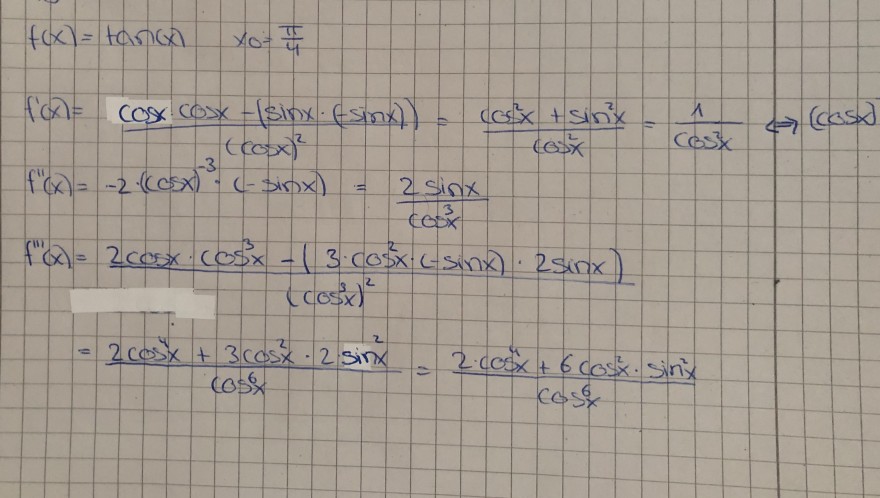 f(x) = tan(x) x0 = π/4
f'(x) = (cosx · cosx - (sinx · (-sinx))) / (cosx)² = (cos²x + sin²x) / cos²x = 1 / cos²x ⇔ (cosx)
f''(x) = -2·(cosx)⁻³ · (-sinx) = 2 sinx / cos³x
f'''(x) = (2cosx · cos³x - (3·cos²x·(-sinx) · 2sinx)) / (cos³x)²
= (2cos⁴x + 3cos²x · 2·sin²x) / cos⁶x = (2·cos⁴x + 6cos²x · sin²x) / cos⁶x